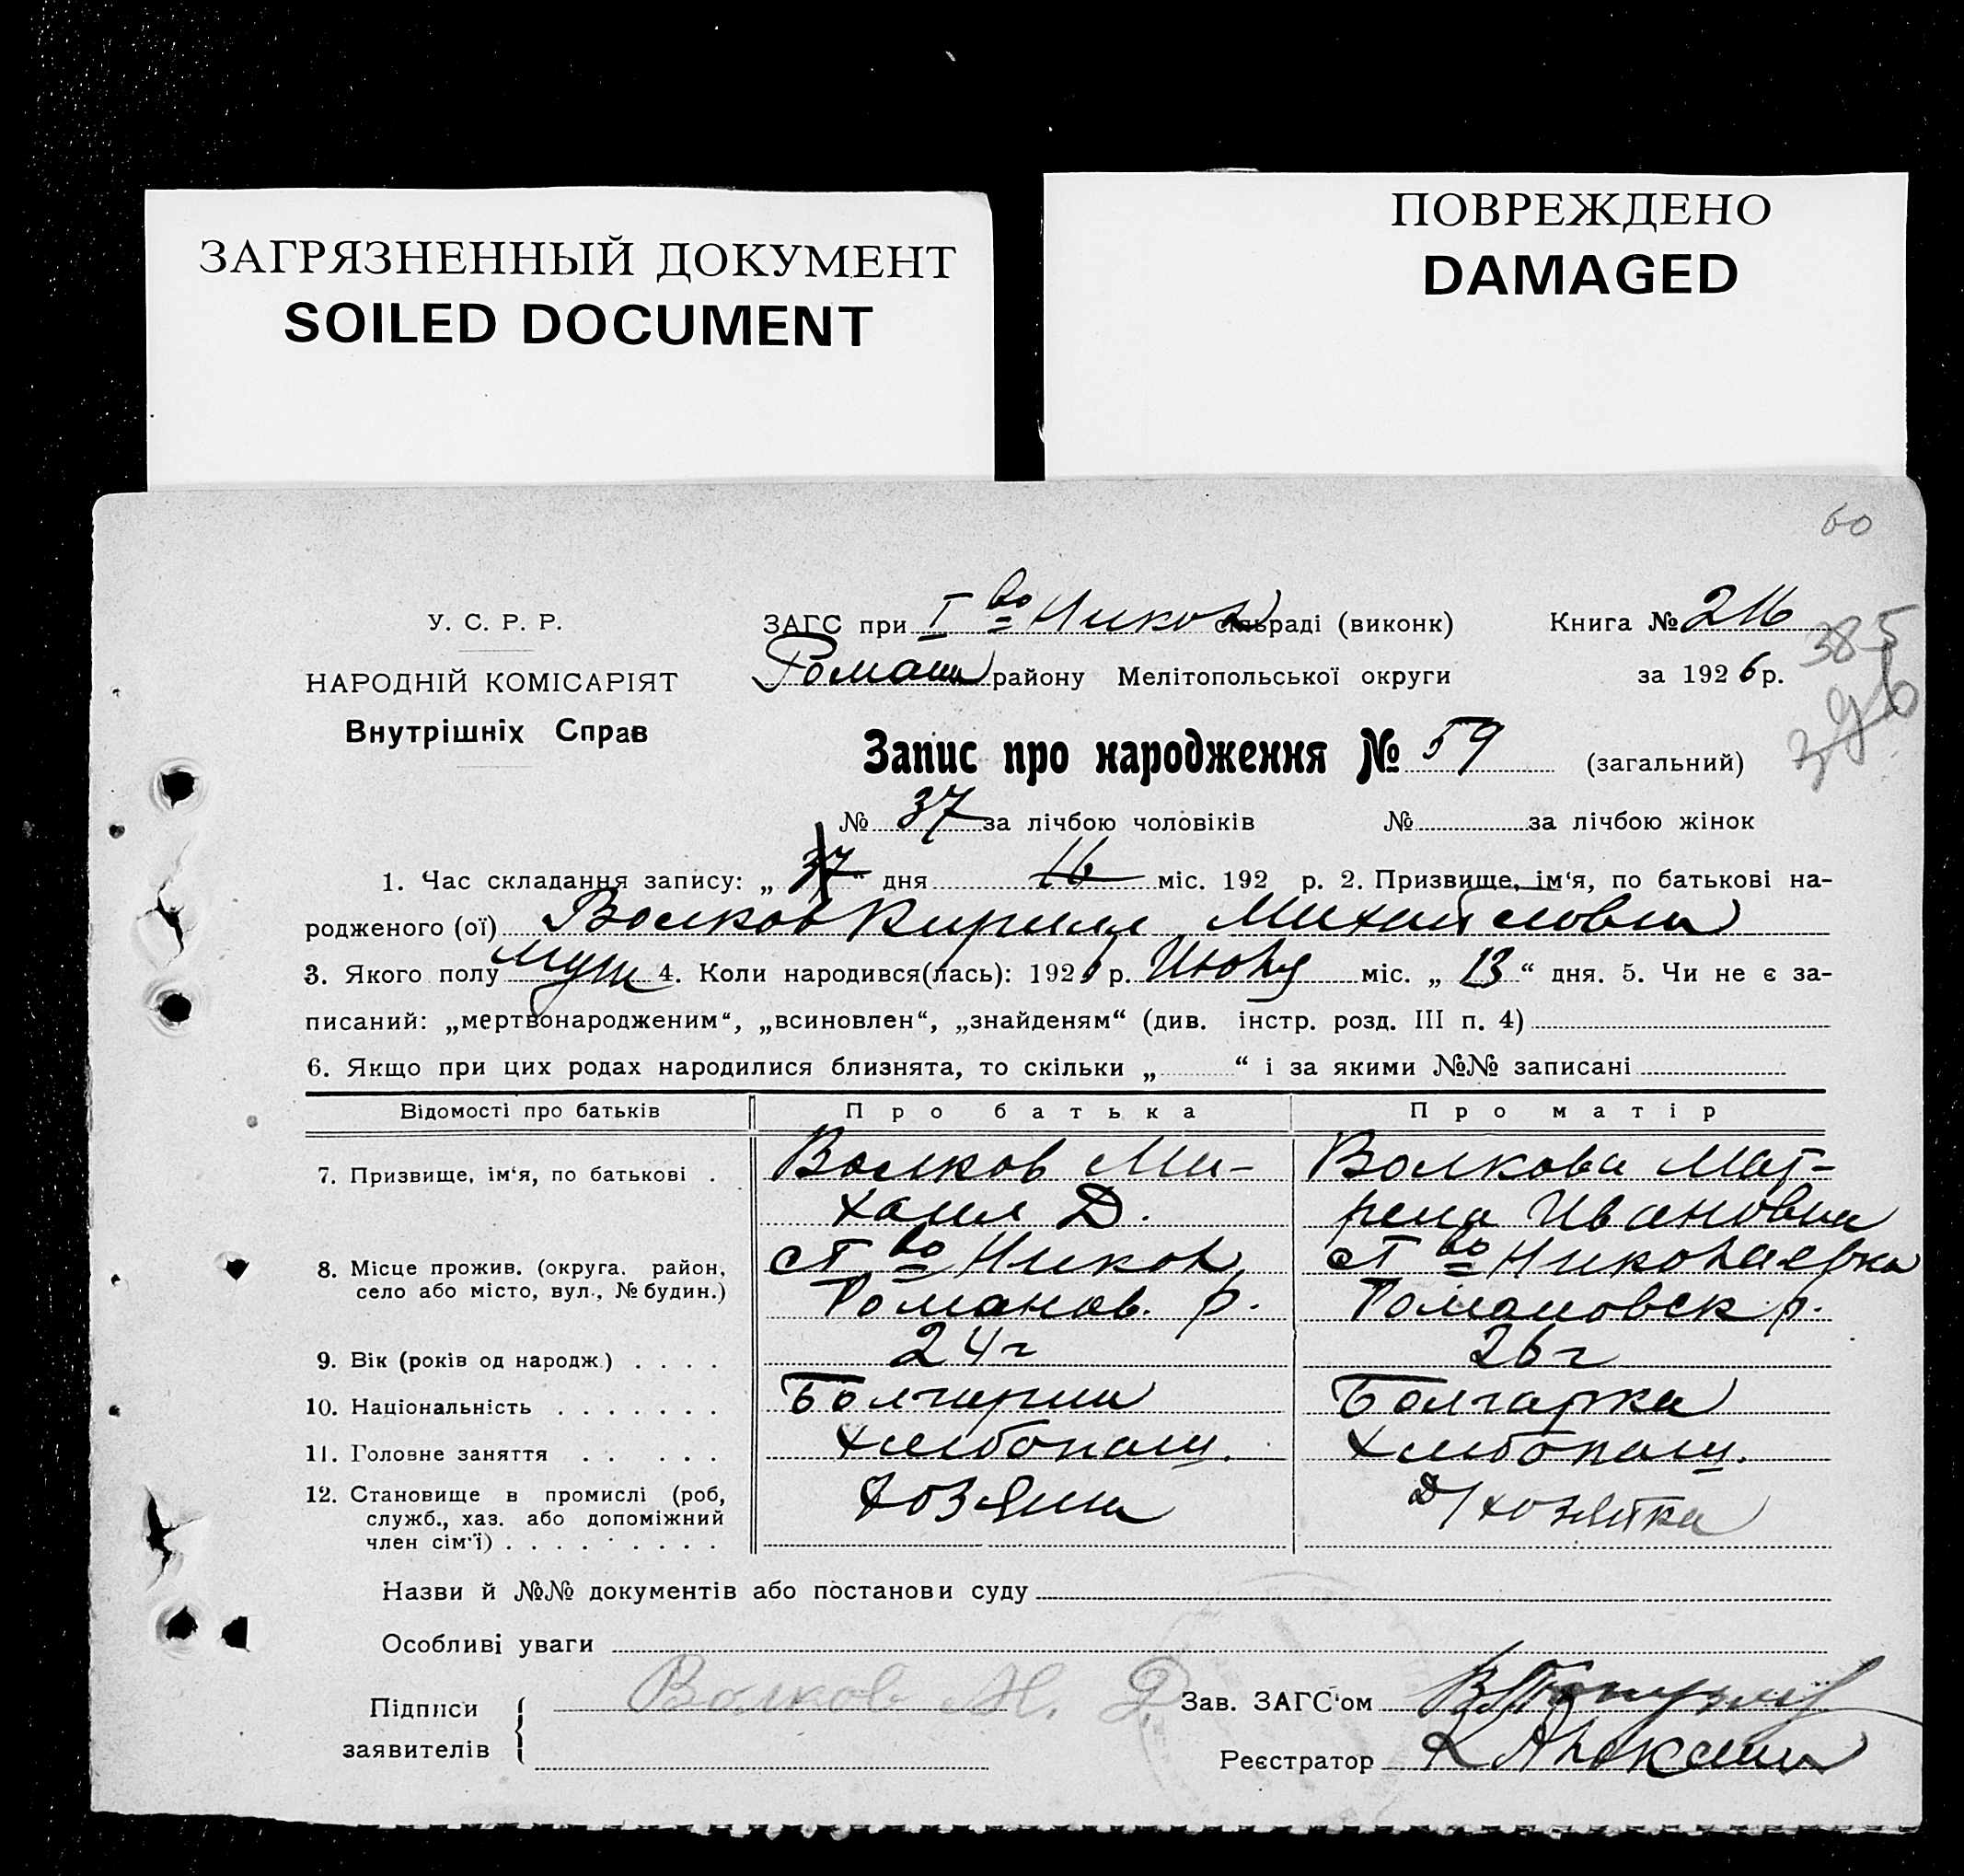 ЗАГРЯЗНЕННЫЙ ДОКУМЕНТ
SOILED DOCUMENT
ПОВРЕЖДЕНО
DAMAGED
60
У. С. Р. Р.
НАРОДНІЙ КОМІСАРІЯТ
Внутрішніх Справ
ЗАГС при І во Никол сільраді (виконк)
Роман району Мелітопольської округи
Книга № 216
за 1926 р.
385
396
Запис про народження № 59 (загальний)
№ 37 за лічбою чоловіків № за лічбою жінок
1. Час складання запису: „37“ дня 16 міс. 192 р. 2. Призвище, ім‘я, по батькові на-
родженого (ої) Волков Кирилл Михайлович
3. Якого полу муж 4. Коли народився(лась): 1926 р. Июня міс. „13“ дня. 5. Чи не є за-
писаний: „мертвонародженим“, „всиновлен“, „знайденям“ (див. інстр. розд. III п. 4)
6. Якщо при цих родах народилися близнята, то скільки „ “ і за якими №№ записані
Відомості про батьків Про батька Про матір
7. Призвище, ім‘я, по батькові . Волков Ми- Волкова Мат-
хаил Д. рена Ивановна
8. Місце прожив. (округа, район, с І во Никол с І во Николаевка
село або місто, вул., № будин.) Романов. р. Романовск р.
9. Вік (років од народж.) . . . . 24 г 26 г
10. Національність . . . . . . . Болгарин Болгарка
11. Головне заняття . . . . . Хлебопаш. Хлебопаш.
12. Становище в промислі (роб, Хозяин Д/хозяйка
служб., хаз. або допоміжний
член сім‘ї) . . . . . . . . .
Назви й №№ документів або постанови суду
Особливі уваги
Підписи
заявителів
Волков М. Д.
Зав. ЗАГС‘ом
Реєстратор